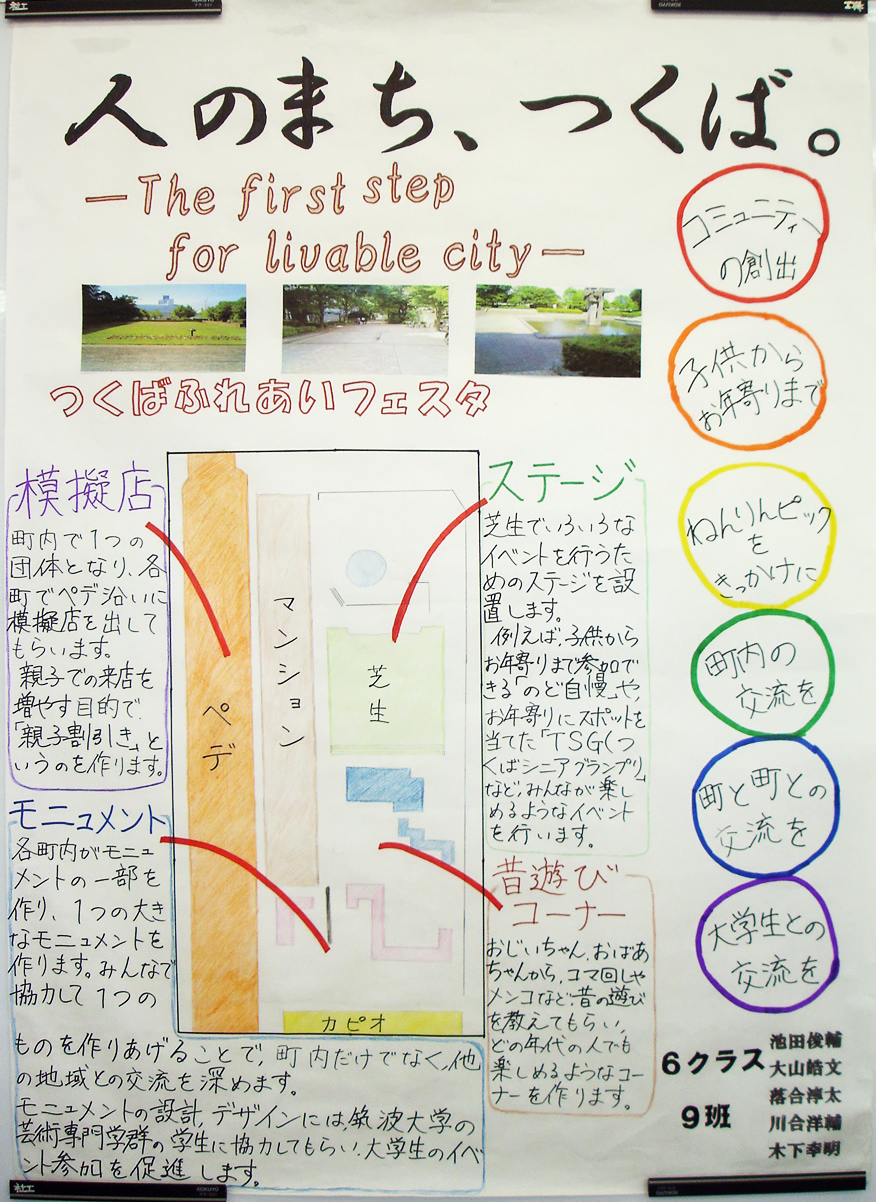 人のまち、つくば。
―The first step
for livable city―
つくばふれあいフェスタ
コミュニティ
の創出
子供から
お年寄りまで
ねんりんピック
を
きっかけに
町内の
交流を
町と町との
交流を
大学生との
交流を
模擬店
町内で1つの
団体となり、各
町でペデ沿いに
模擬店を出して
もらいます。
親子での来店を
増やす目的で、
「親子割引き」と
いうのを作ります。
ステージ
芝生でいろいろな
イベントを行うた
めのステージを設
置します。
例えば、子供から
お年寄りまで参加で
きる「のど自慢」や、
お年寄りにスポットを
当てた「TSG(つ
くばシニアグランプリ)」
など、みんなが楽し
めるようなイベント
を行います。
ペデ
マンション
芝生
カピオ
モニュメント
各町内がモニュ
メントの一部を
作り、1つの大き
なモニュメントを
作ります。みんなで
協力して1つの
ものを作りあげることで、町内だけでなく、他
の地域との交流を深めます。
モニュメントの設計、デザインには、筑波大学の
芸術専門学群の学生に協力してもらい、大学生のイベ
ント参加を促進します。
昔遊び
コーナー
おじいちゃん、おばあ
ちゃんから、コマ回しや
メンコなど、昔の遊び
を教えてもらい、
どの年代の人でも
楽しめるようなコー
ナーを作ります。
6クラス
9班
池田俊輔
大山皓文
落合淳太
川合洋輔
木下幸明
社工
社工